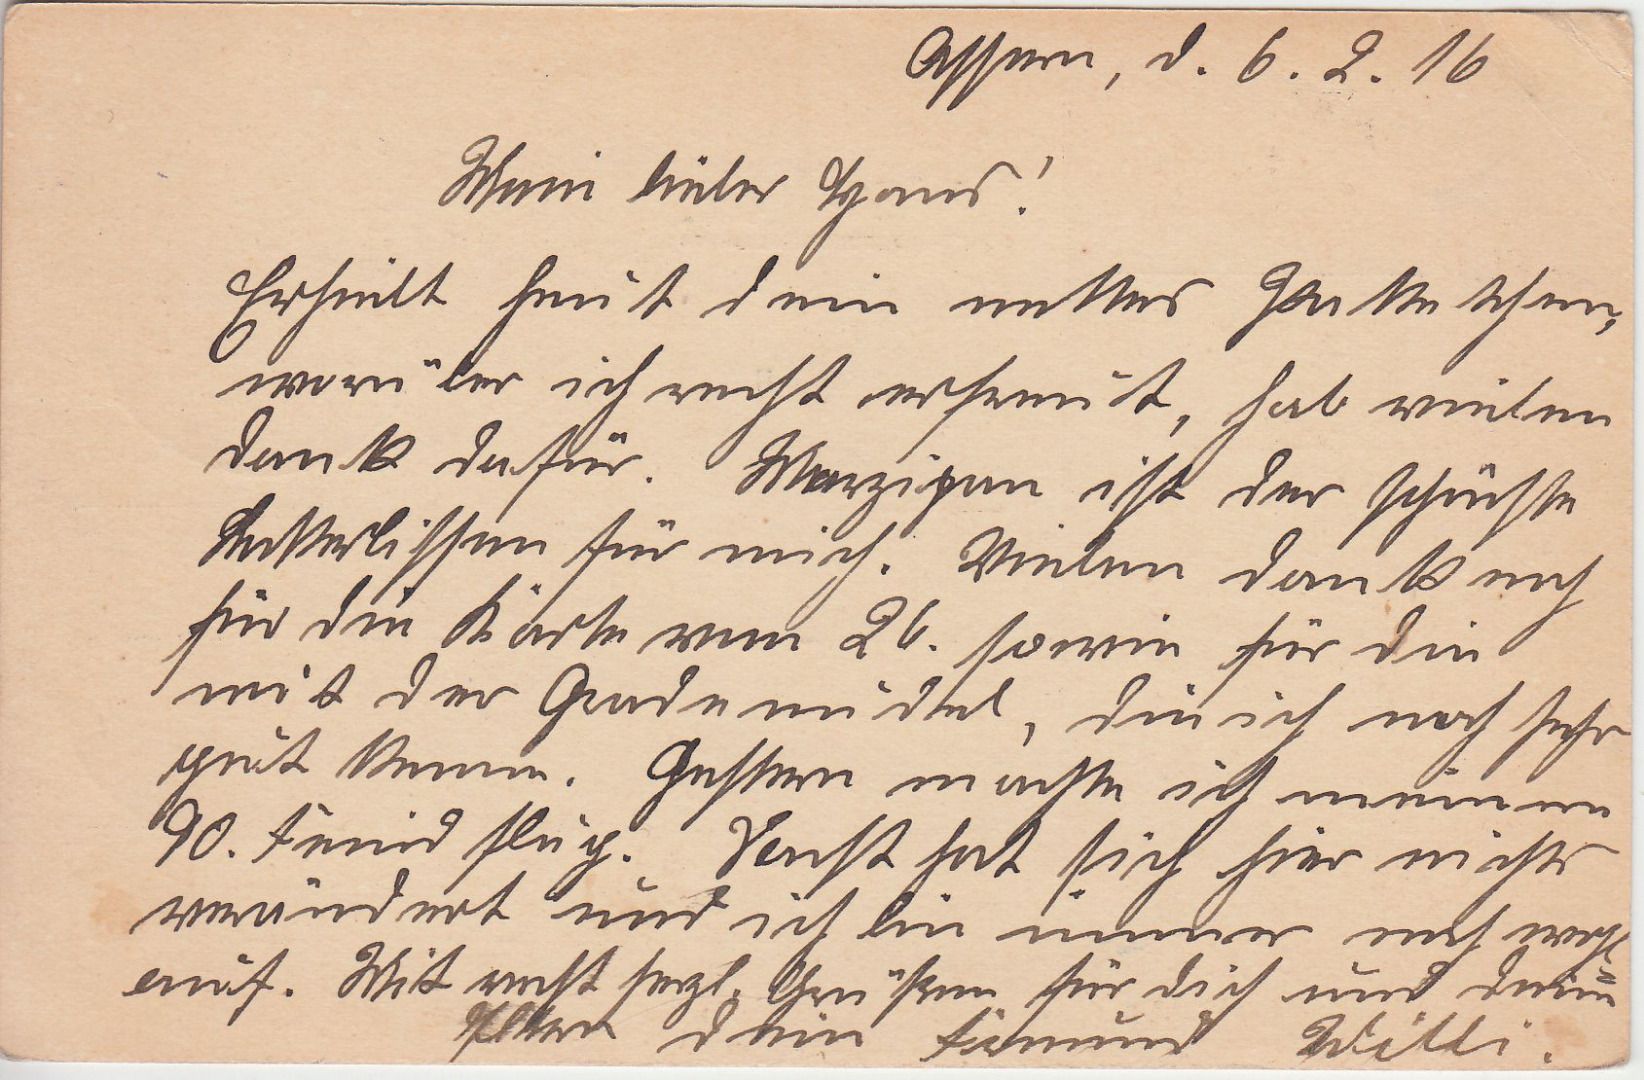 Assern, d. 6. 2. 16
Mein lieber Hans!
Erhielt heut dein nettes Paketchen,
worüber ich recht erfreut, hab vielen
Dank dafür. Marzipan ist der schönste
Leckerbissen für mich. Vielen Dank noch
für die Karte vom 26. sowie für die
mit der, die ich noch sehr
gut kenne. Gestern machte ich meinen
90. Feindflug. Sonst hat sich hier nichts
verändert und ich bin immer noch wohl
auf. Mit recht herzl. Grüßen für dich und deine
Eltern dein Freund Willi.